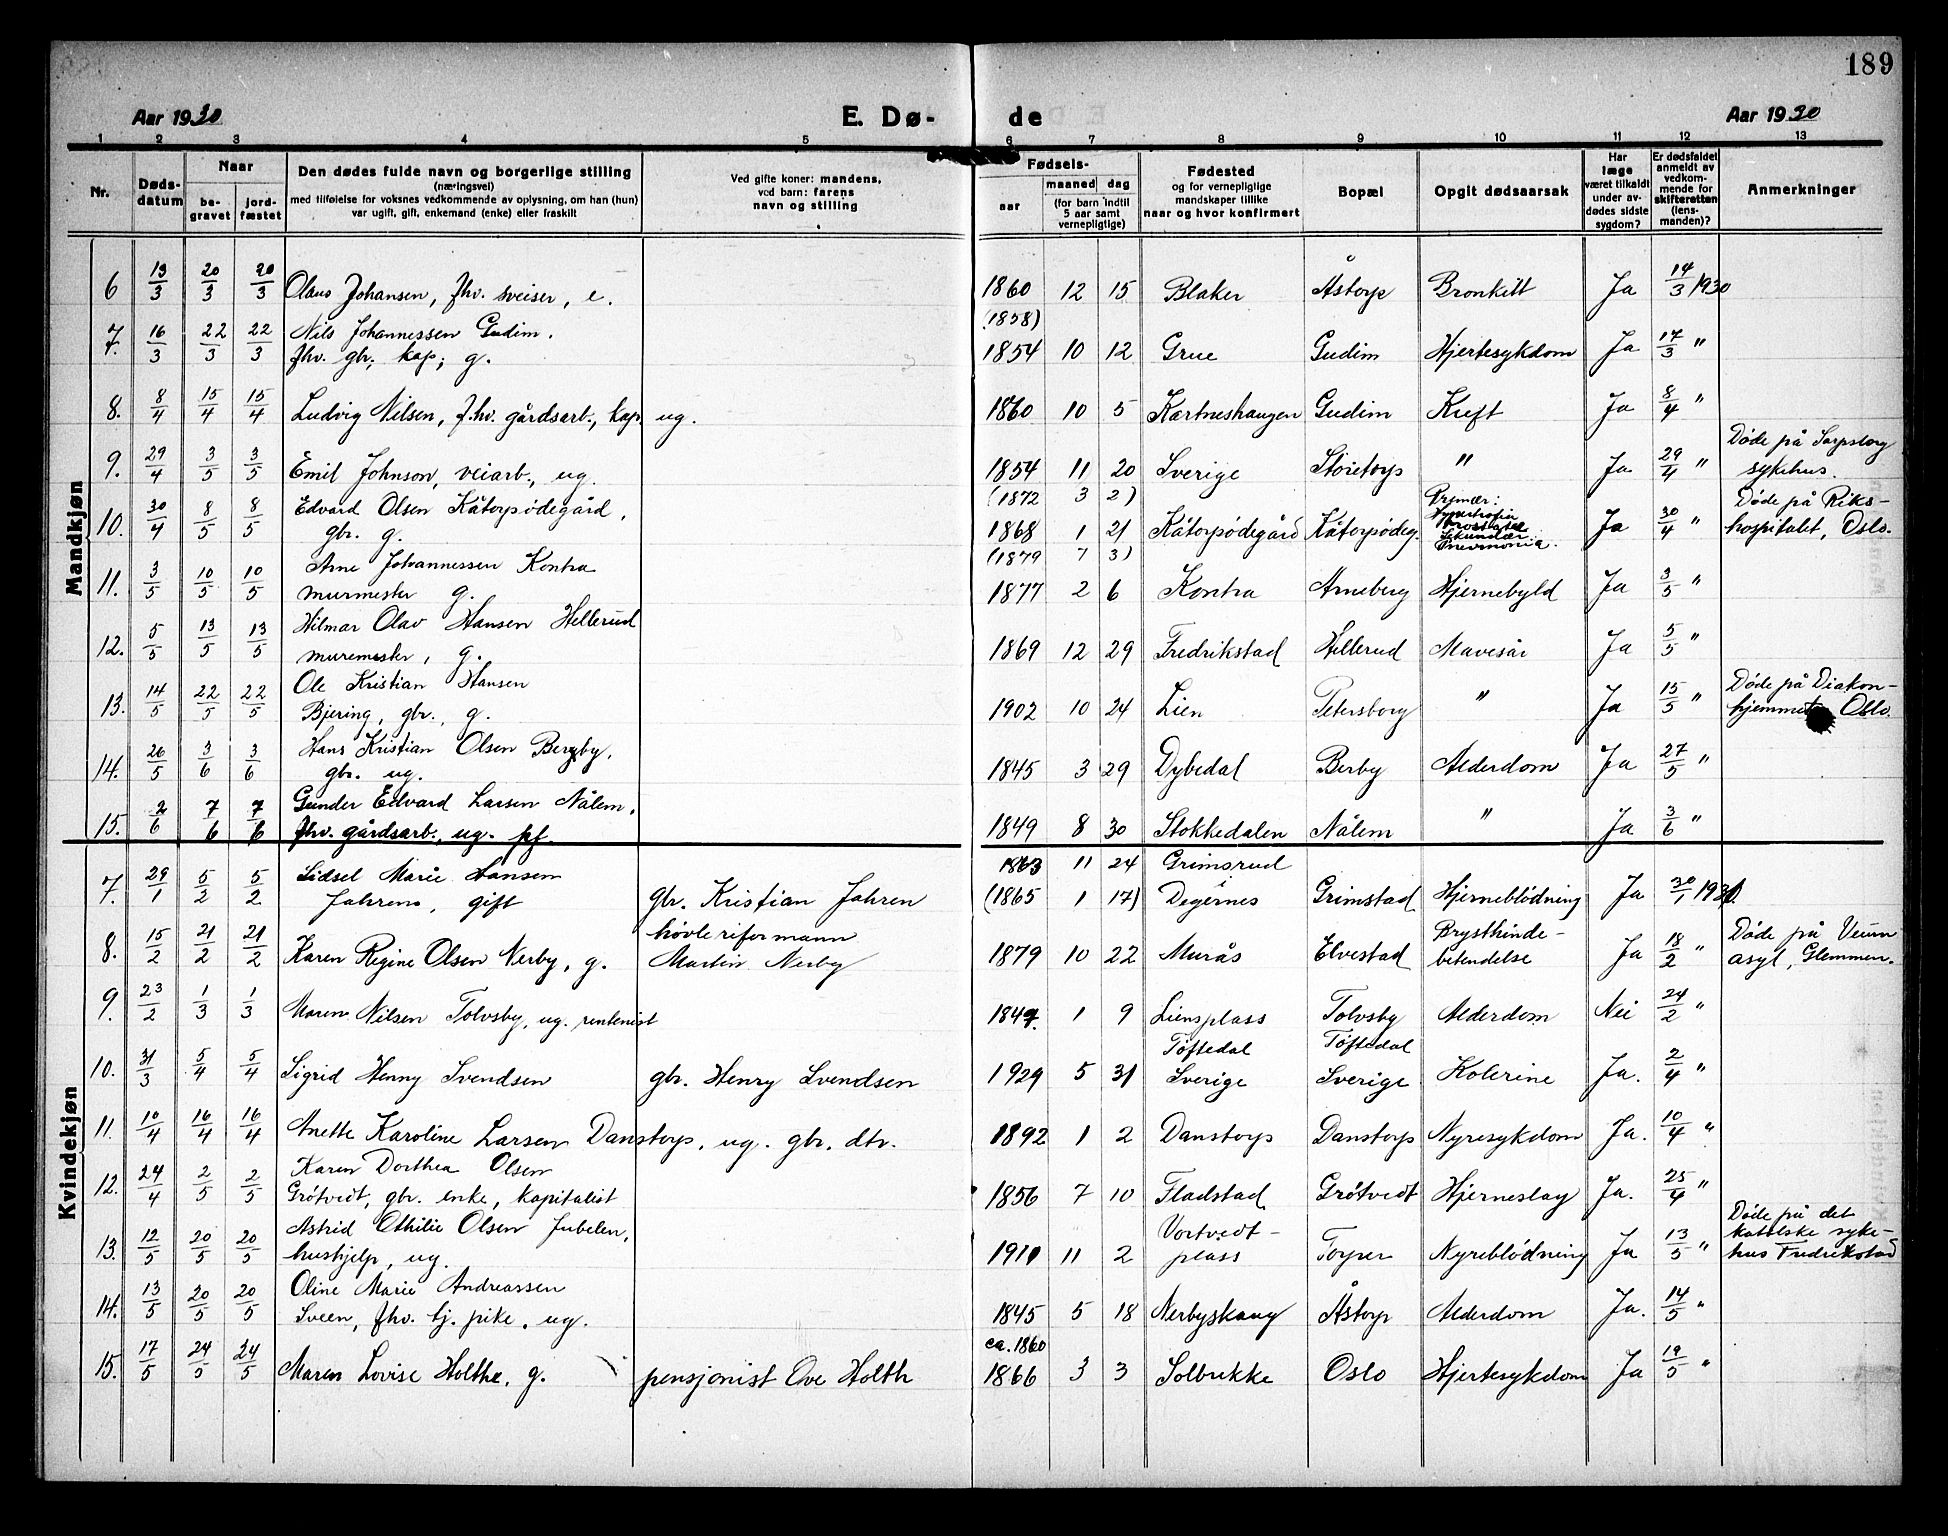 189
Aar 1930 E. Dø- de Aar 1930
1 2 3 4 5 6 7 8 9 10 11 12 13
Nr.
Døds-
datum
Naar
be-
gravet
jord-
fæstet
Den dødes fulde navn og borgerlige stilling
(næringsvei)
med tilføielse for voksnes vedkommende av oplysning, om han (hun)
var ugift, gift, enkemand (enke) eller fraskilt
Ved gifte koner: mandens,
ved barn: farens
navn og stilling
Fødsels-
aar
maaned dag
(for barn indtil
5 aar samt
vernepligtige)
Fødested
og for vernepligtige
mandskaper tillike
naar og hvor konfirmert
Bopæl
Opgit dødsaarsak
Har
læge
været tilkaldt
under av-
dødes sidste
sygdom?
Er dødsfaldet
anmeldt av
vedkom-
mende for
skifteretten
(lens-
manden)?
Anmerkninger
Mandkjøn
6 13/3 20/3 20/3 Olaus Johansen, fhv. sveiser, e. 1860 12 15 Blaker Åstorp Bronkitt Ja 14/3 1930
(1858)
7. 16/3 22/3 22/3 Nils Johannessen Gudim.
fhv. gbr, kap; g. 1854 10 12 Grue Gudim Hjertesykdom Ja 17/3 "
8. 8/4 15/4 15/4 Ludvig Nilsen, f.hv. gårdsarb., kap. ug. 1860 10 5 Kærtneshaugen Gudim Kreft Ja 8/4 "
9. 29/4 3/5 3/5 Emil Johnson, veiarb., ug. 1854 11 20 Sverige Støietorp " Ja. 29/4 " Døde på Sarpsborg
sykehus.
(1872 3 2)
10. 30/4 8/5 8/5 Edvard Olsen Kåtorpødegård,
gbr. g. 1868 1 21 Kåtorpødegård Kåtorpødeg. Primær:
Sekundær:
Pnevmonia. Ja 30/4 " Døde på Riks-
hospitalet, Oslo.
(1879 7 3)
11. 3/5 10/5 10/5 Arne Johannessen Kontra
murmester g. 1877 2 6 Kontra Arneberg Hjernebyld Ja 3/5 "
12. 5/5 13/5 13/5 Hilmar Olav Hansen Hellerud
muremester, g. 1869 12 29 Fredrikstad Hellerud Mavesår Ja 5/5 "
13. 14/5 22/5 22/5 Ole Kristian Hansen
Bjering, gbr., g. 1902 10 24 Lien Petersborg " Ja 15/5 " Døde på Diakon-
hjemmet, Oslo.
14. 26/5 3/6 3/6 Hans Kristian Olsen Bergby,
gbr. ug. 1845 3 29 Dybedal Berby Alderdom Ja 27/5 "
15. 2/6 7/6 7/6 Gunder Edvard Larsen Nålem,
fhv. gårdsarb., ug. pf. 1849 8 30 Stokkedalen Nålem " Ja 3/6 "
Kvindekjøn
7. 29/1 5/2 5/2 Sidsel Marie Hansen
Jahren, gift gbr. Kristian Jahren 1863 11 24 Grimsrud
(1865 1 17) i Degernes Grimstad Hjerneblødning Ja 30/1 1930
8. 15/2 21/2 21/2 Karen Regine Olsen Nerby, g. høvleriformann
Martin Nerby 1879 10 22 Murås Elvestad Brysthinde-
betendelse Ja 18/2 " Døde på Veum
asyl, Glemmen.
9. 23/2 1/3 1/3 Maren Nilsen Tolvsby, ug. rentenist 1847. 1 9 Liensplass Tolvsby Alderdom Nei 24/2 "
10. 31/3 5/4 5/4 Sigrid Henny Svendsen gbr. Henry Svendsen 1929 5 31 Tøftedal
Sverige Tøftedal
Sverige Kolerine Ja. 2/4 "
11. 10/4 16/4 16/4 Anette Karoline Larsen Danstorp, ug. gbr. dtr. 1892 1 2 Danstorp Danstorp Nyresykdom Ja. 10/4 "
12. 24/4 2/5 2/5 Karen Dorthea Olsen
Grøtvedt, gbr. enke, kapitalist 1856 7 10 Fladstad Grøtvedt Hjerneslag Ja. 25/4 "
13. 12/5 20/5 20/5 Astrid Othilie Olsen Jubelen,
hushjelp, ug. 1910 11 2 Vortvedt-
plass Torper Nyreblødning Ja 13/5 " Døde på det
katolske syke-
hus Fredrikstad
14. 13/5 20/5 20/5 Oline Marie Andreassen
Sveen, fhv. tj. pike, ug. 1845 5 18 Nerbyskaug Åstorp Alderdom Ja. 14/5 "
ca. 1860
15. 17/5 24/5 24/5 Maren Lovise Holthe, g. pensjonist Ove Holth 1866 3 3 Solbrekke Oslo Hjertesykdom Ja 19/5 "